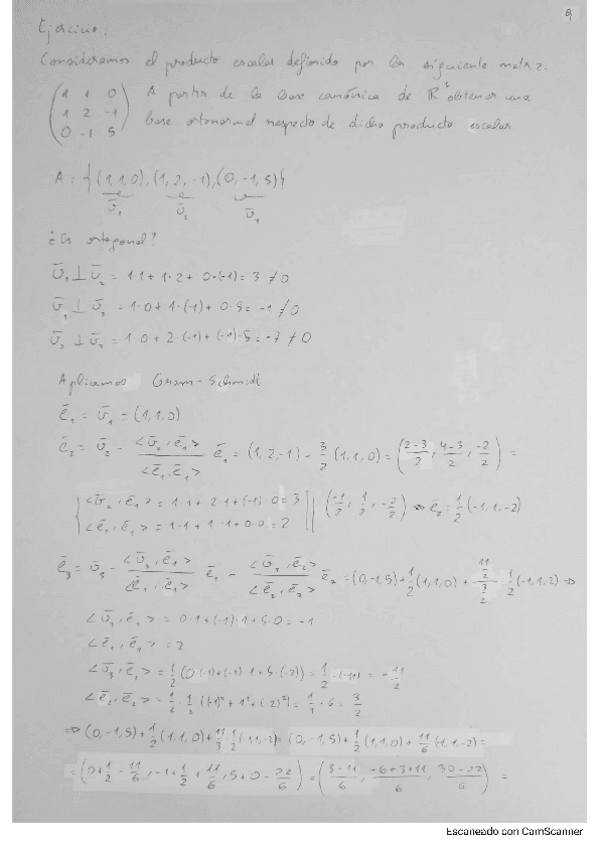 9
Ejercicio:
Consideramos el producto escalar definido por la siguiente matriz:
(1 1 0) A partir de la base canónica de R³ obtener una
(1 2 -1) base ortonormal respecto de dicho producto escalar
(0 -1 5)
A = {(1,1,0), (1,2,-1), (0,-1,5)}
v̄₁ v̄₂ v̄₃
¿Es ortogonal?
v̄₁ ⊥ v̄₂ = 1·1 + 1·2 + 0·(-1) = 3 ≠ 0
v̄₁ ⊥ v̄₃ = 1·0 + 1·(-1) + 0·5 = -1 ≠ 0
v̄₂ ⊥ v̄₃ = 1·0 + 2·(-1) + (-1)·5 = -7 ≠ 0
Aplicamos Gram-Schmidt
ē₁ = v̄₁ = (1,1,0)
ē₂ = v̄₂ - <v̄₂, ē₁>/<ē₁, ē₁> ē₁ = (1,2,-1) - 3/2 (1,1,0) = (2-3/2, 4-3/2, -2/2) =
{<v̄₂, ē₁> = 1·1 + 2·1 + (-1)·0 = 3 || (-1/2, 1/2, -2/2) ⇒ ē₂ = 1/2 (-1,1,-2)
<ē₁, ē₁> = 1·1 + 1·1 + 0·0 = 2
ē₃ = v̄₃ - <v̄₃, ē₁>/<ē₁, ē₁> ē₁ - <v̄₃, ē₂>/<ē₂, ē₂> ē₂ = (0,-1,5) + 1/2 (1,1,0) + (11/2)/(3/2) · 1/2 (-1,1,2) ⇒
<v̄₃, ē₁> = 0·1 + (-1)·1 + 5·0 = -1
<ē₁, ē₁> = 2
<v̄₃, ē₂> = 1/2 (0·(-1) + (-1)·1 + 5·(-2)) = 1/2 · (-11) = -11/2
<ē₂, ē₂> = 1/2 · 1/2 ((-1)² + 1² + (-2)²) = 1/4 · 6 = 3/2
⇒ (0,-1,5) + 1/2 (1,1,0) + 11/3 · 1/2 (-1,1,-2) = (0,-1,5) + 1/2 (1,1,0) + 11/6 (-1,1,-2) =
= (0 + 1/2 - 11/6, -1 + 1/2 + 11/6, 5 + 0 - 22/6) = (3-11/6, -6+3+11/6, 30-22/6) =
Escaneado con CamScanner